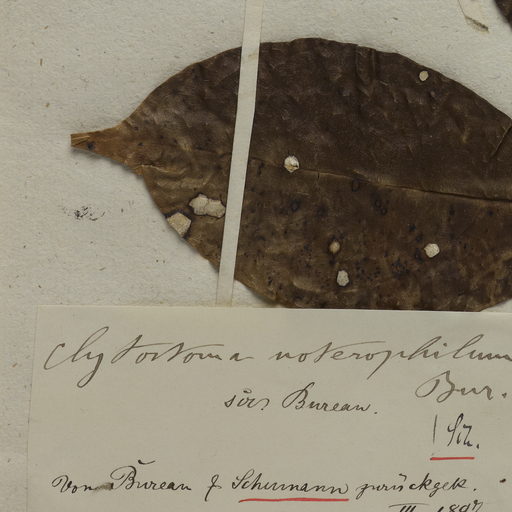 Clytostoma noterophilum
Bur.
Bureau.
Sch.
Von Bureau & Schumann zurückgek.
III. 1897